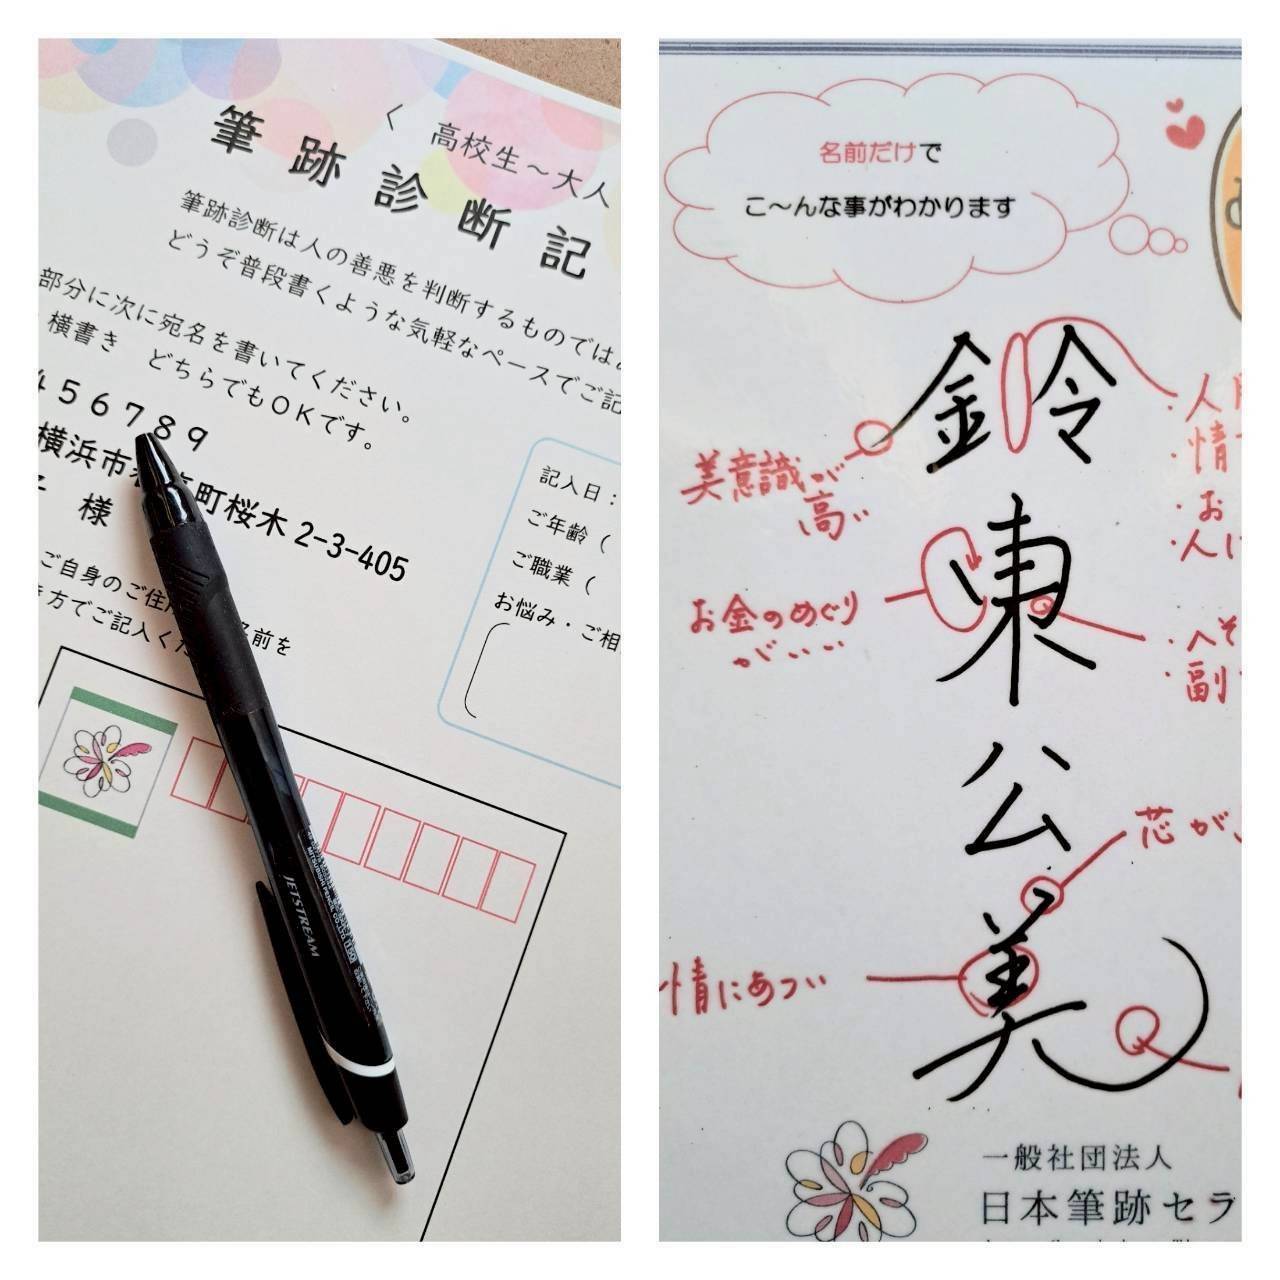 く 高校生～大人
筆跡診断記
筆跡診断は人の善悪を判断するものでは
どうぞ普段書くような気軽なペースでご記
部分に次に宛名を書いてください。
横書き どちらでもOKです。
456789
横浜市 町桜木2-3-405
様
ご自身のご住 名前を
き方でご記入くだ
記入日：
ご年齢（
ご職業（
お悩み・ご相
JETSTREAM
名前だけで
こ～んな事がわかります
鈴東公美
美意識が
高い
お金のめぐり
がいい
情にあつい
人
情
お
人に
へそ
副
芯が
一般社団法人
日本筆跡セラ